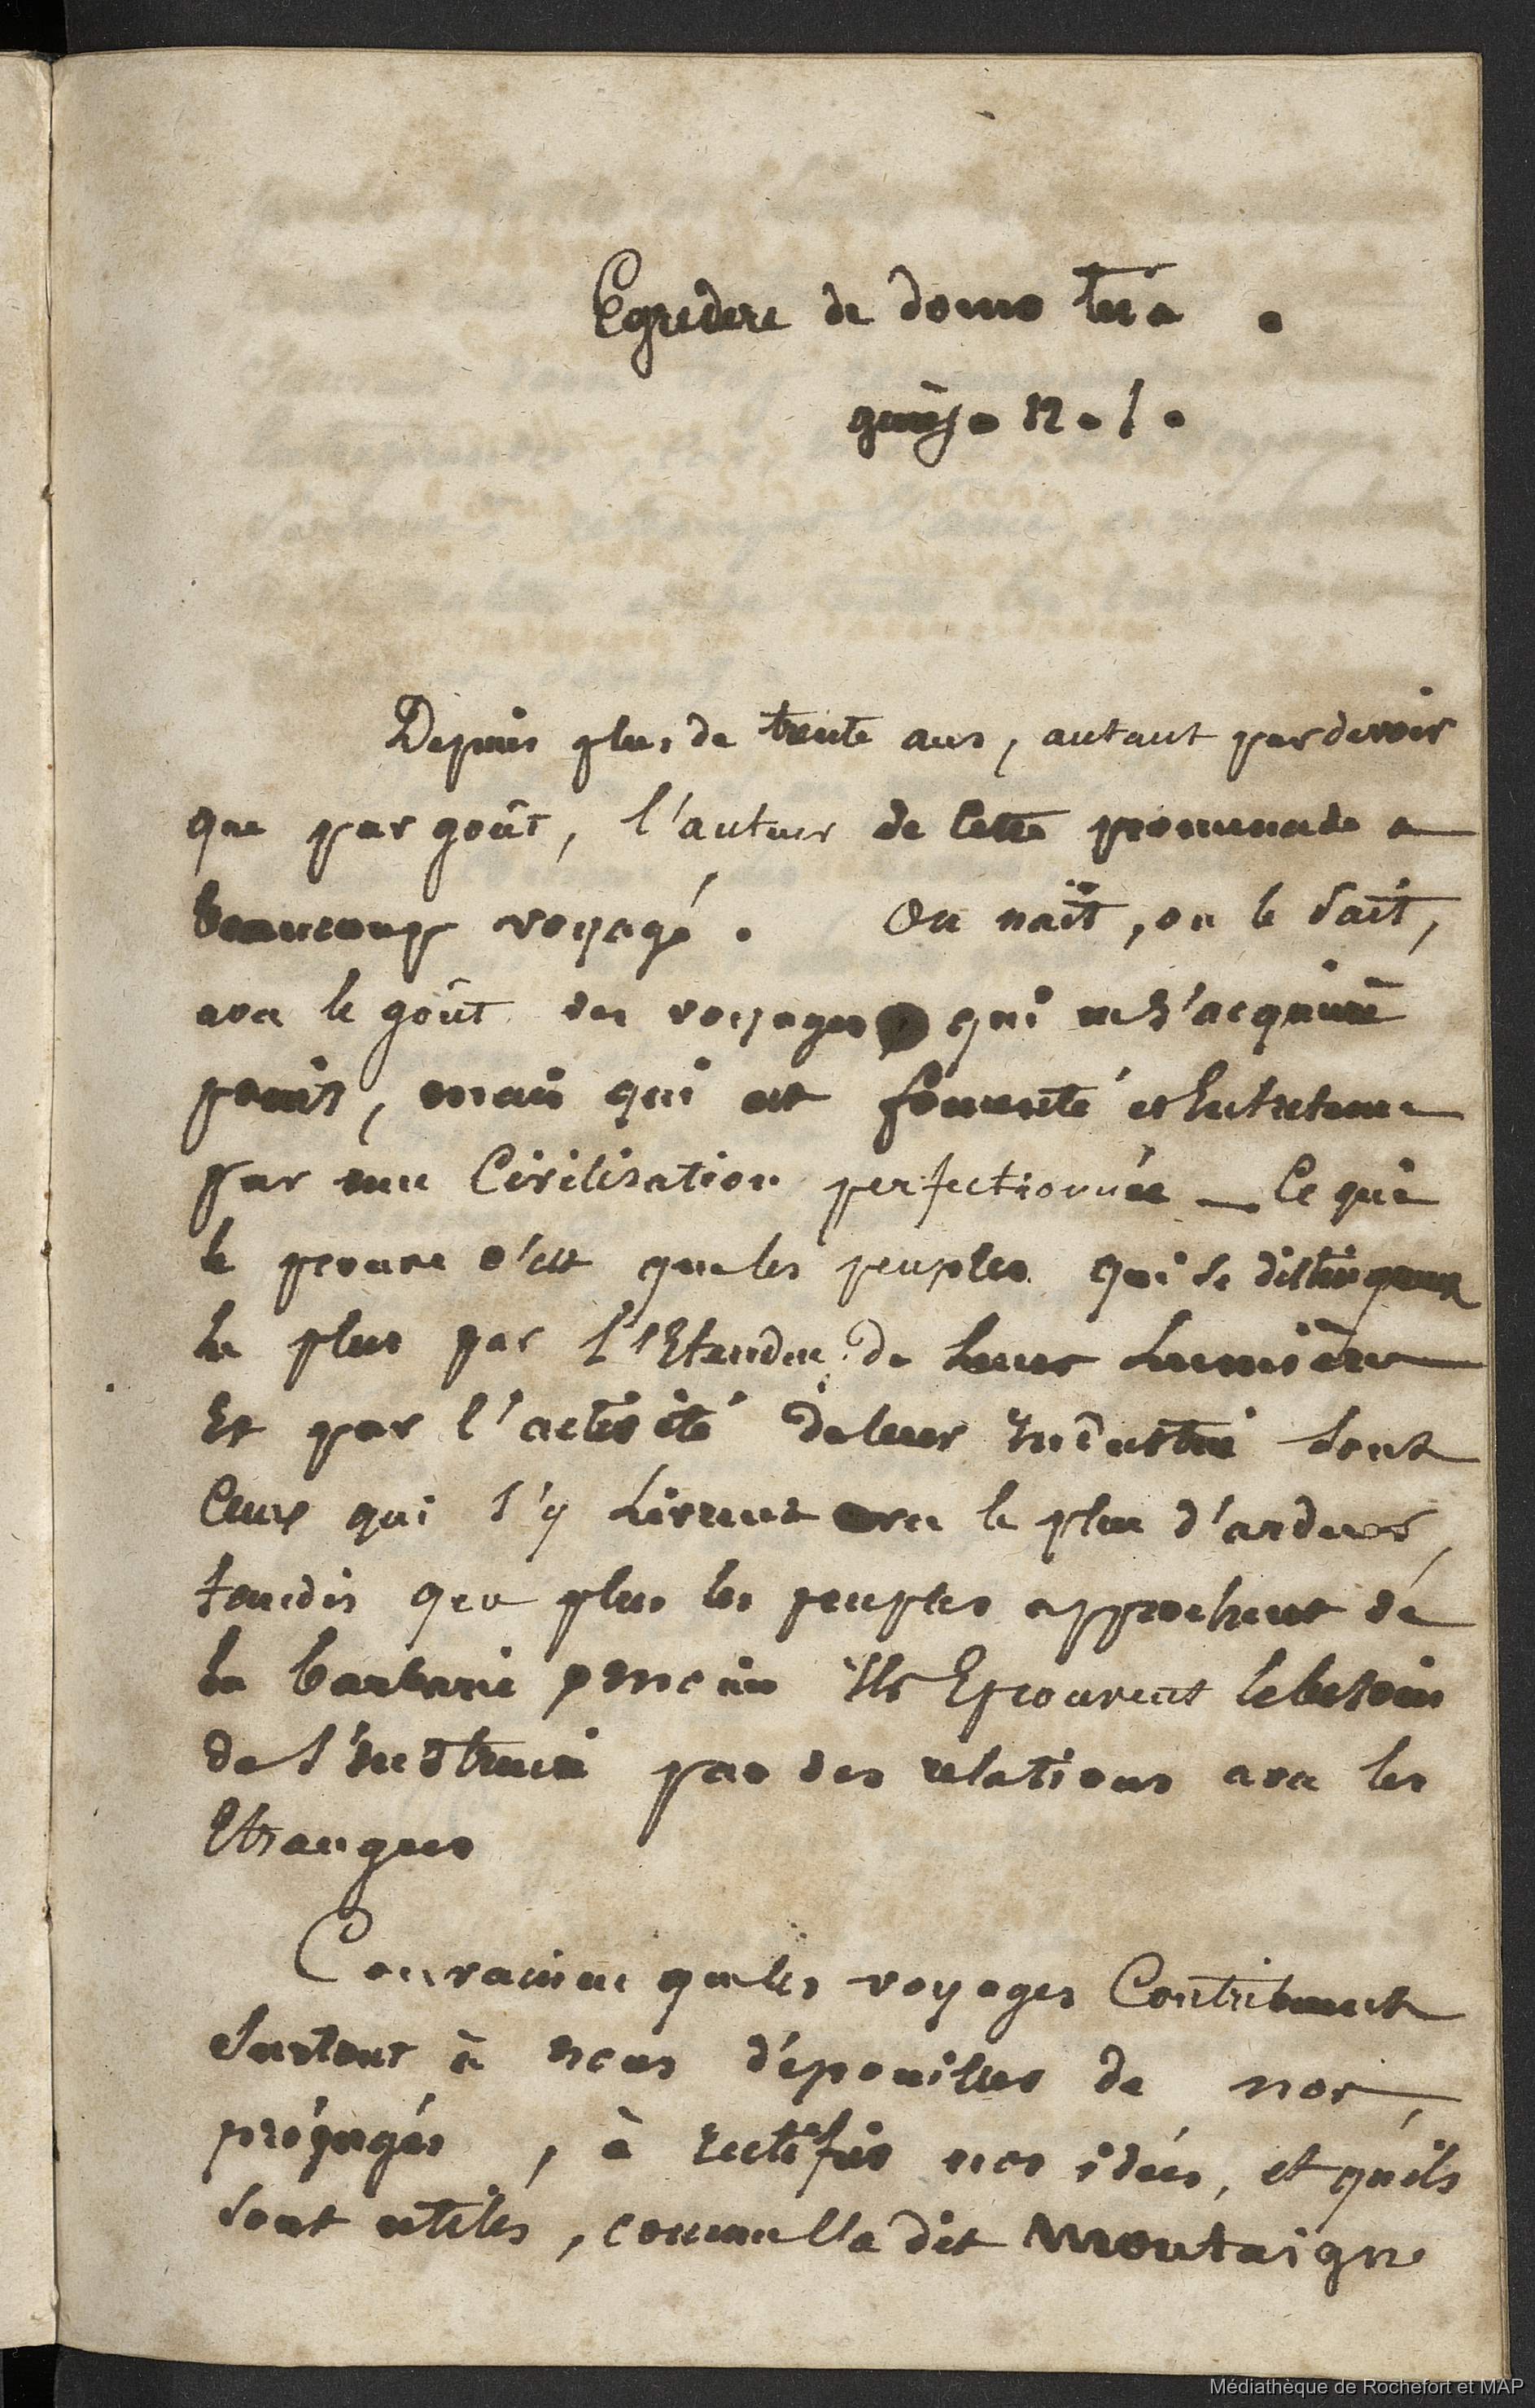 Egredere de domo tuâ .
genès. 12. 1.
Depuis plus de trente ans, autant par devoir
que par goût, l'auteur de cette promenade a
beaucoup voyagé. On naît, on le sait,
avec le goût des voyages qui ne s'acquiert
point, mais qui est fomenté et Entretenu
par une Civilisation perfectionnée — Ce qui
le prouve c'est que les peuples qui se distinguent
le plus par l'Etendue de Leurs Lumières
Et par l'activité de leur Industrie sont
Ceux qui s'y Livrent avec le plus d'ardeur,
tandis que plus les peuples approchent de
la barbarie moins Ils Eprouvent le besoin
de s'instruire par des relations avec les
Etrangers
Convaincu que les voyages Contribuent
Surtout à nous dépouiller de nos
préjugés, à rectifier nos idées, et qu'ils
sont utiles, comme l'a dit Montaigne
Médiathèque de Rochefort et MAP